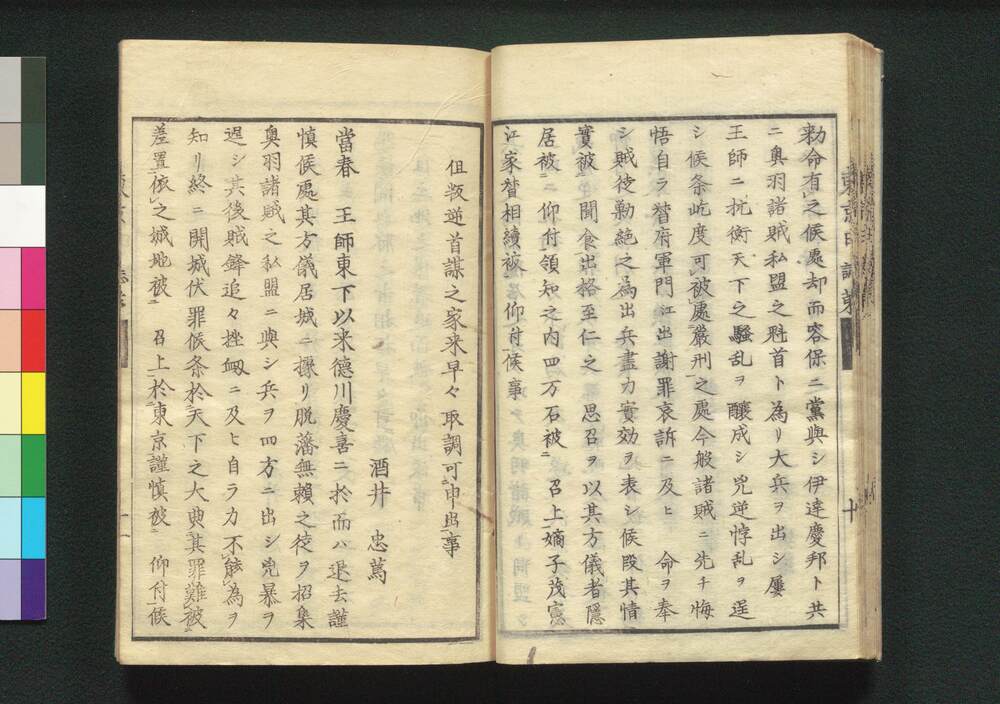 勅命有之候處却而容保ニ黨與シ伊達慶邦ト共
ニ奥羽諸賊私盟之魁首ト為リ大兵ヲ出シ屢
王師ニ抗衡天下之騒乱ヲ醸成シ兇逆悖乱ヲ逞
シ候条屹度可被處嚴刑之處今般諸賊ニ先チ悔
悟自ラ督府軍門江出謝罪哀訴ニ及ヒ 命ヲ奉
シ賊徒勦絶之為出兵盡力實効ヲ表シ候段其情
實被 聞食出格至仁之 思召ヲ以其方儀者隠
居被 仰付領知之内四万石被 召上嫡子茂憲
江家督相續被 仰付候事
十
但叛逆首謀之家来早々取調可申出事
酒井 忠篤
當春 王師東下以来德川慶喜ニ於而ハ退去謹
慎候處其方儀居城ニ據リ脱藩無賴之徒ヲ招集
奥羽諸賊之私盟ニ與シ兵ヲ四方ニ出シ兇暴ヲ
逞シ其後賊鋒追々挫衂ニ及ヒ自ラ力不能為ヲ
知リ終ニ開城伏罪候条於天下之大典其罪難被
差置依之城地被 召上於東京謹慎被 仰付候